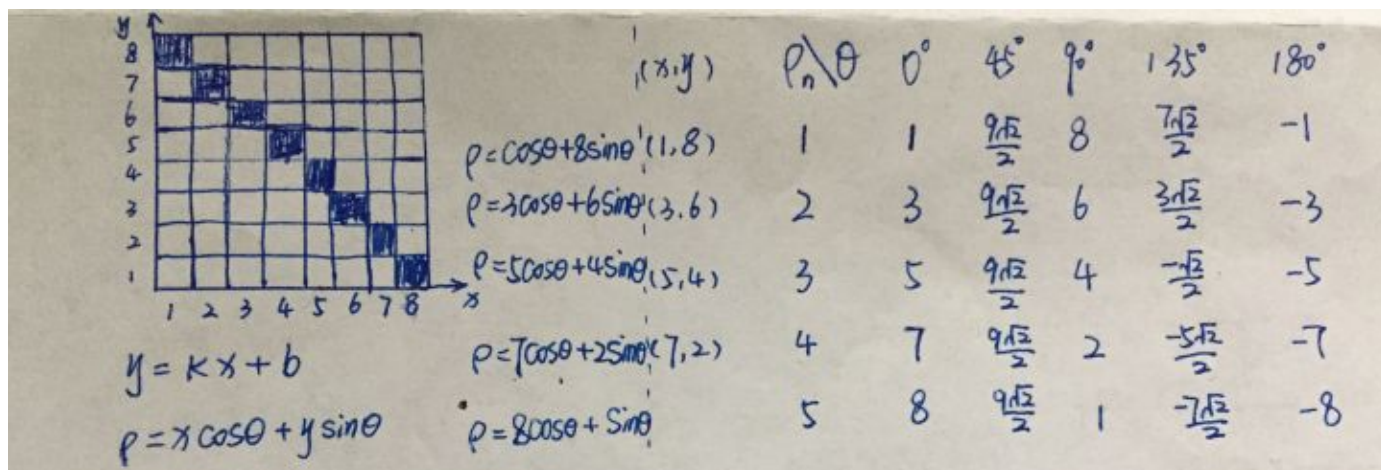 y
8
7
6
5
4
3
2
1
1 2 3 4 5 6 7 8 x
y = kx + b
ρ = x cosθ + y sinθ
(x,y) ρₙ\θ 0° 45° 90° 135° 180°
ρ=cosθ+8sinθ (1,8) 1 1 9√2/2 8 7√2/2 -1
ρ=3cosθ+6sinθ (3,6) 2 3 9√2/2 6 3√2/2 -3
ρ=5cosθ+4sinθ (5,4) 3 5 9√2/2 4 -√2/2 -5
ρ=7cosθ+2sinθ (7,2) 4 7 9√2/2 2 -5√2/2 -7
ρ=8cosθ+sinθ 5 8 9√2/2 1 -7√2/2 -8